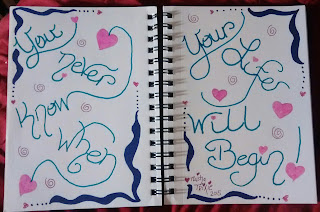 You
Never
Know
When
Your
Life
Will
Begin!